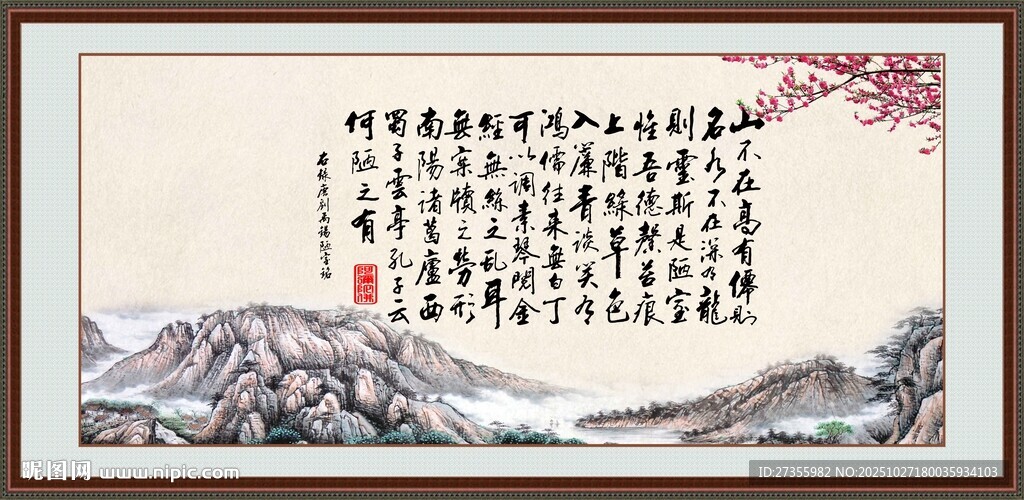 山不在高有僊則
名水不在深有龍
則靈斯是陋室
惟吾德馨苔痕
上階綠草色
入簾青談笑有
鴻儒往來無白丁
可以调素琴閱金
經無絲之乱耳
無案牘之勞形
南陽諸葛廬西
蜀子雲亭孔子云
何陋之有
右録唐刘禹锡陋室铭
阿彌陀佛
昵图网 www.nipic.com
ID:27355982 NO:20251027180035934103